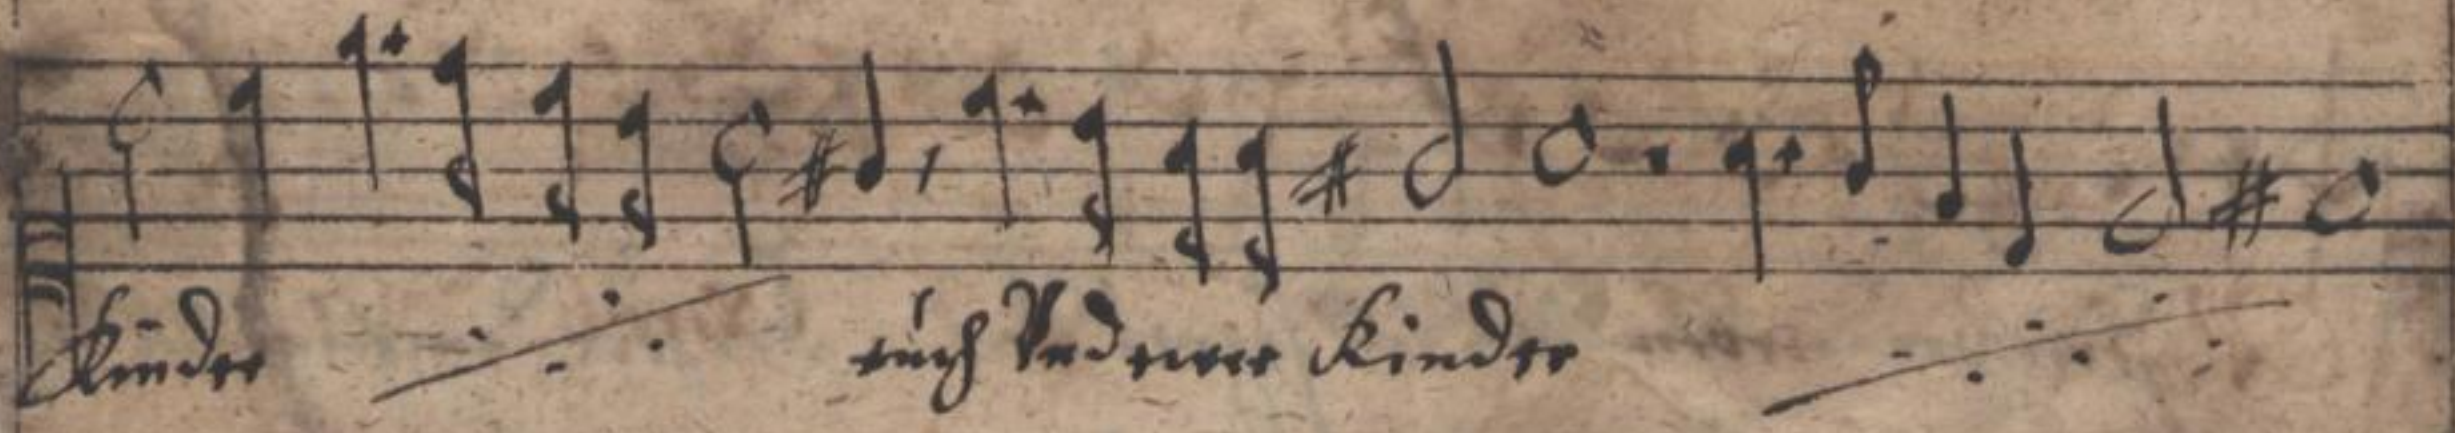 Kinder euch Und ewre Kinder